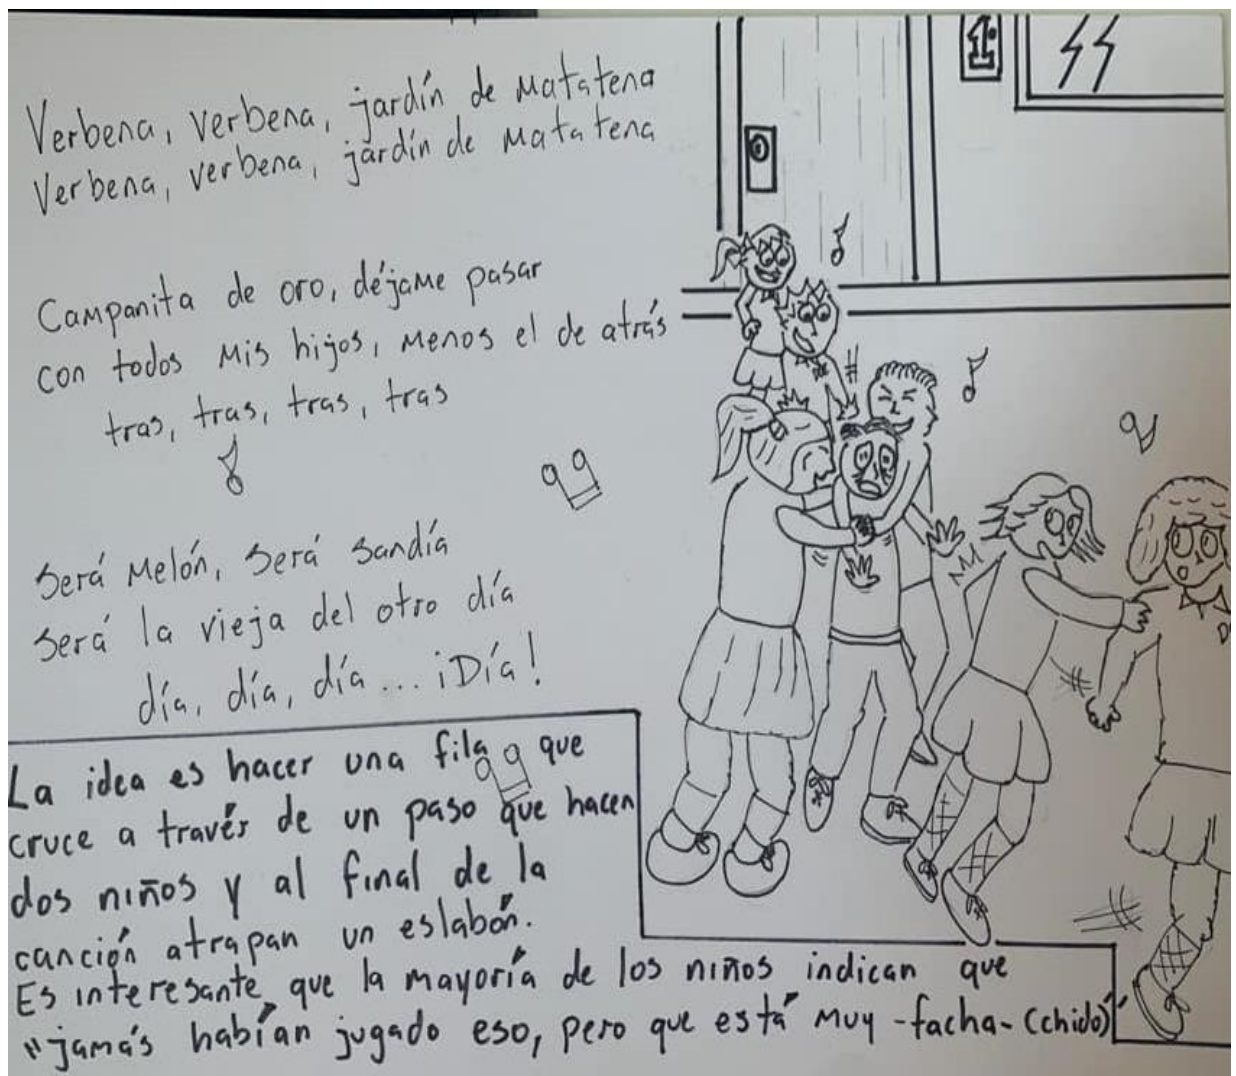 Verbena, verbena, jardín de matatena
Verbena, verbena, jardín de matatena
Campanita de oro, déjame pasar
con todos mis hijos, menos el de atrás
tras, tras, tras, tras
Será melón, será sandía
Será la vieja del otro día
día, día, día... ¡Día!
La idea es hacer una fila que
cruce a través de un paso que hacen
dos niños y al final de la
canción atrapan un eslabón.
Es interesante, que la mayoría de los niños indican que
"jamás habían jugado eso, pero que está muy -facha- (chido)"
1°